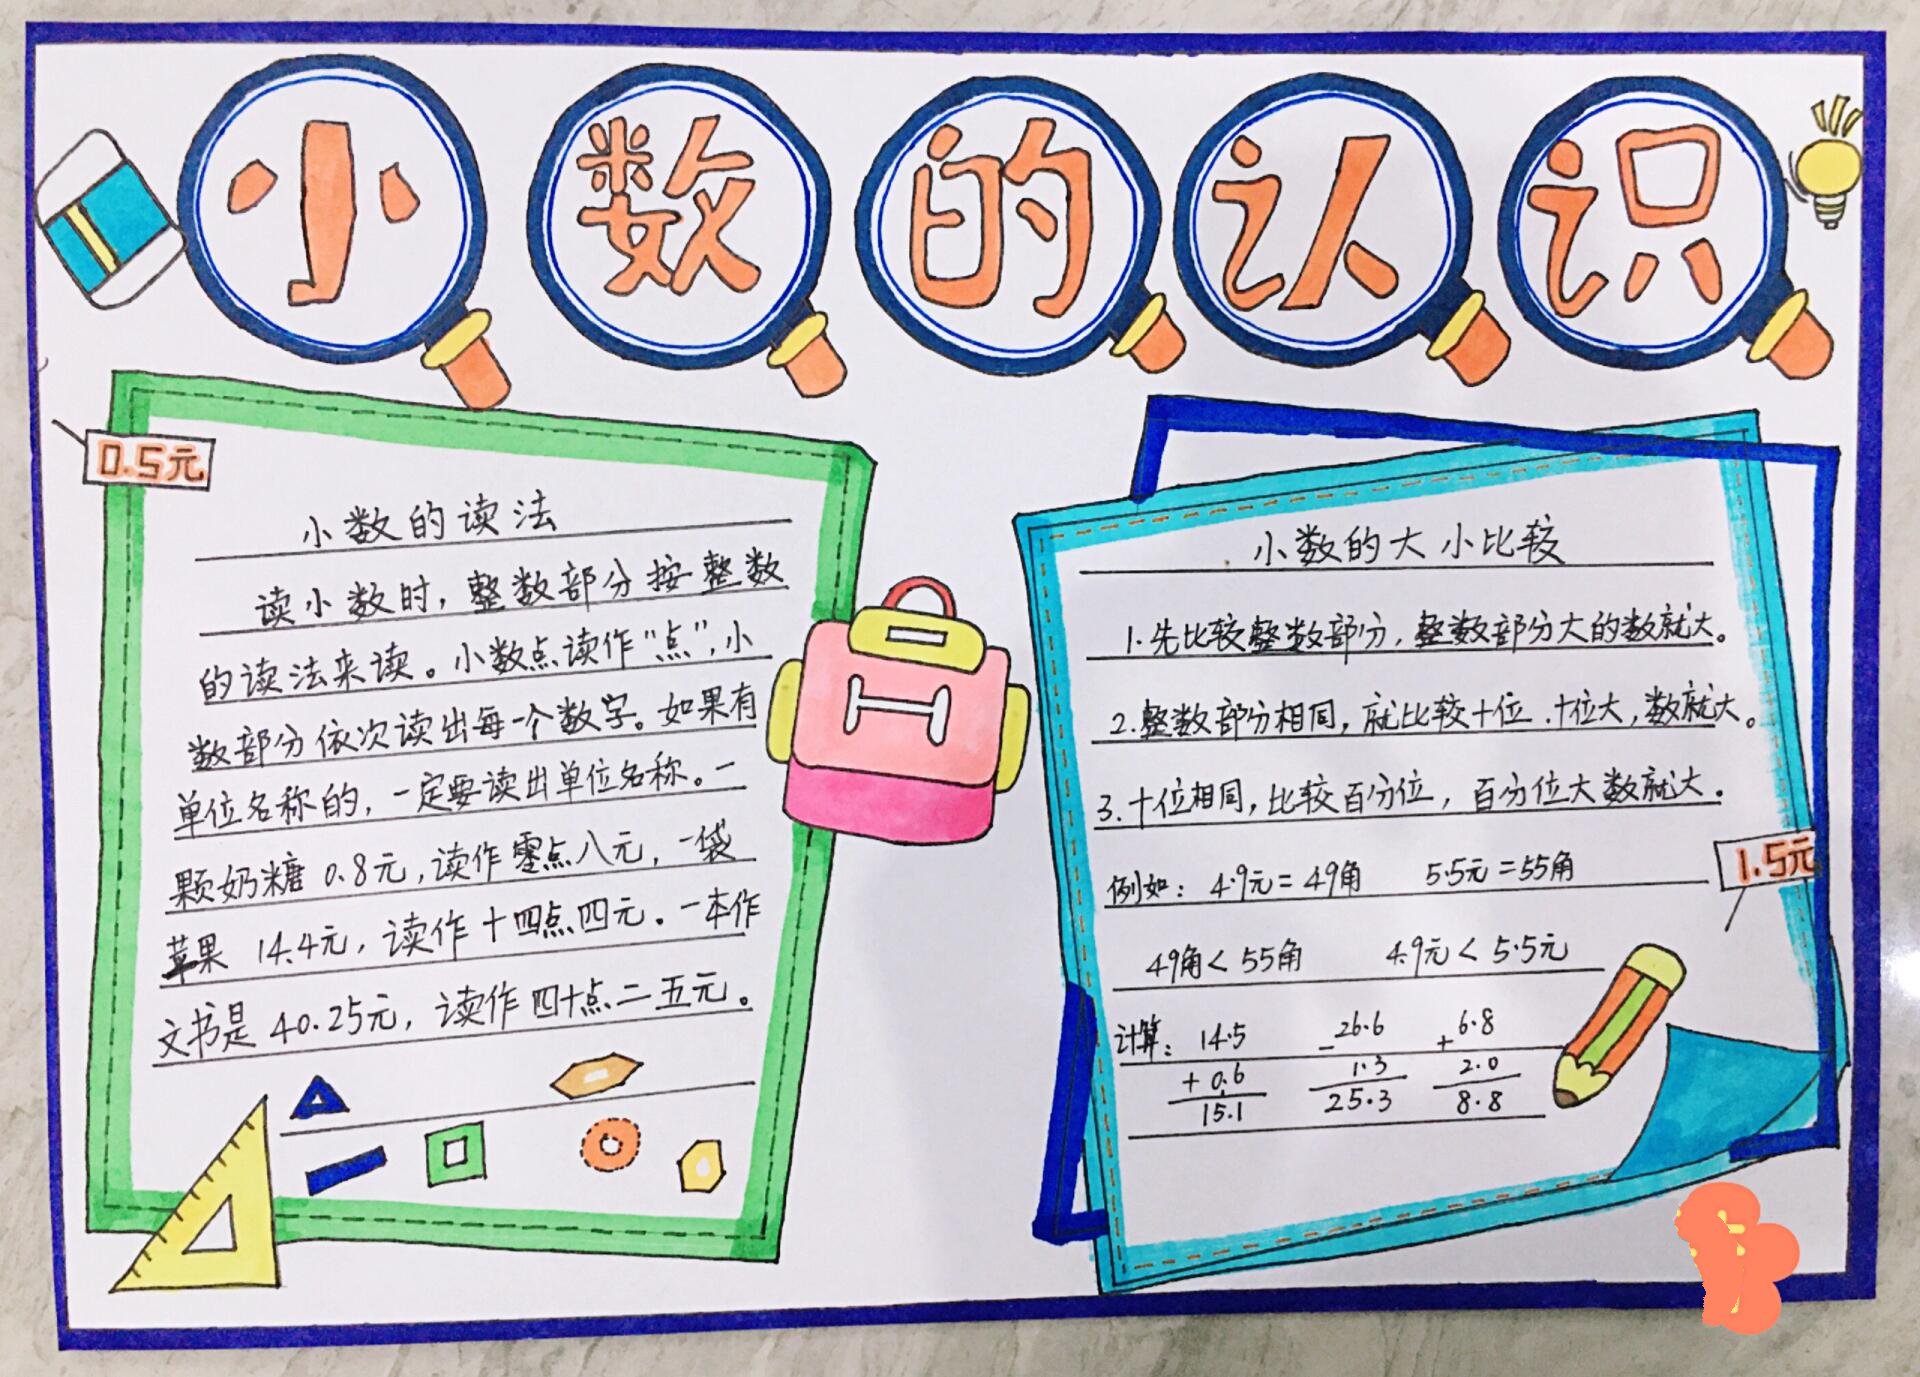 小数的认识
0.5元
小数的读法
读小数时，整数部分按整数
的读法来读。小数点读作“点”，小
数部分依次读出每一个数字。如果有
单位名称的，一定要读出单位名称。一
颗奶糖 0.8元，读作零点八元，一袋
苹果 14.4元，读作十四点四元。一本作
文书是 40.25元，读作四十点二五元。
小数的大小比较
1.先比较整数部分，整数部分大的数就大。
2.整数部分相同，就比较十位.十位大，数就大。
3.十位相同，比较百分位，百分位大数就大.
1.5元
例如：4.9元=49角 5.5元=55角
49角< 55角 4.9元< 5.5元
计算： 14.5 -26.6 +6.8
+ 0.6 1.3 2.0
15.1 25.3 8.8